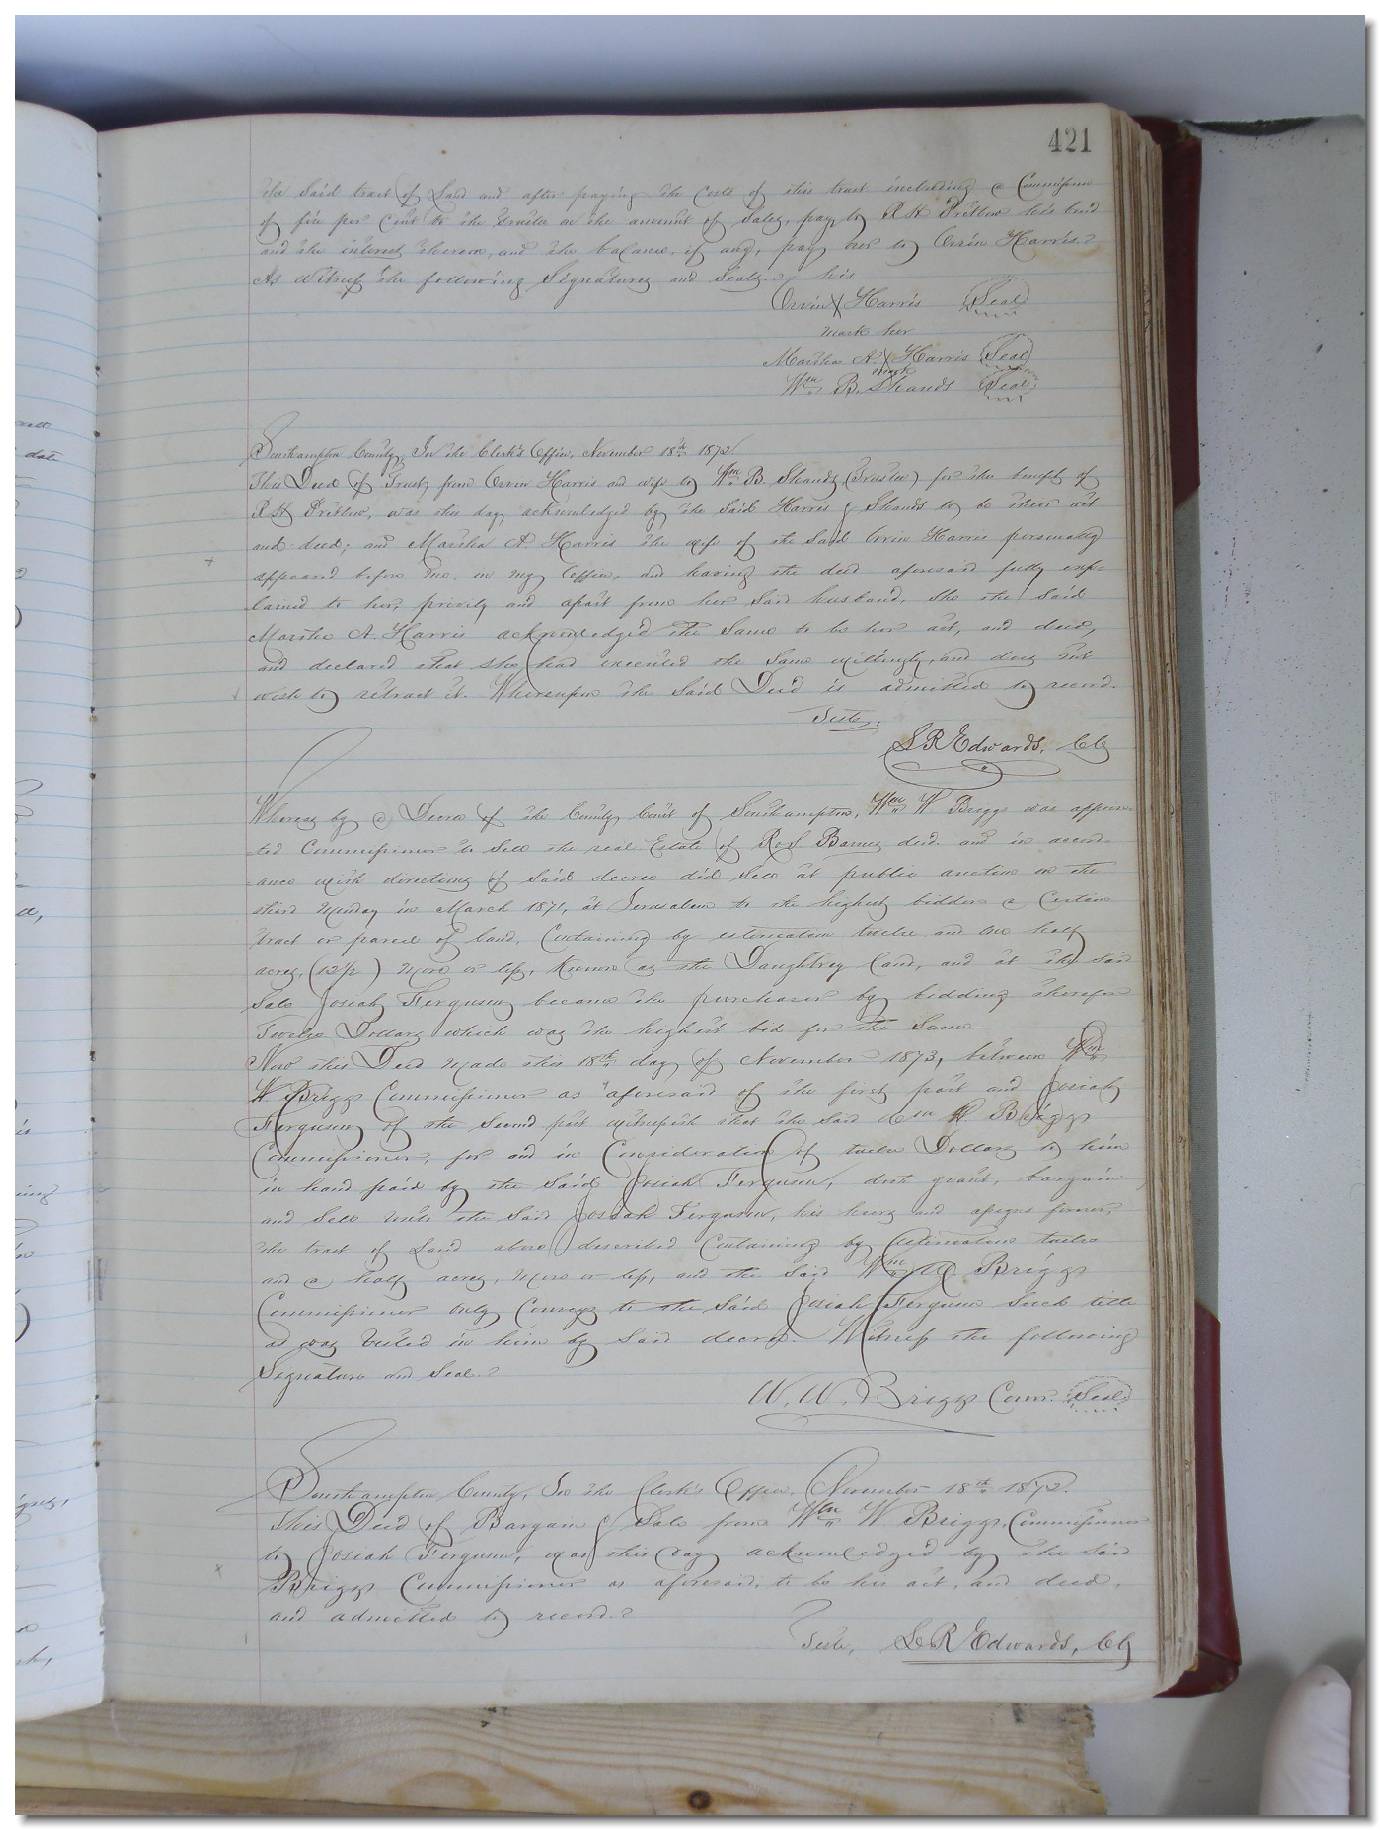 421
the said tract of Land and after paying the costs of this trust including a Commission
of five per Cent to the Trustee on the amount of Sales, pay to R H Pretlow his bond
and the interest thereon, and the balance, if any, pay over to Orrin Harris.
As witness the following Signatures and Seals. his
Orrin X Harris Seal
mark her
Martha A. X Harris Seal
mark
Wm B. Shands Seal
Southampton County, In the Clerk's Office, November 18th 1873.
This Deed of Trust, from Orrin Harris and wife to Wm B. Shands (Trustee) for the benefit of
R H Pretlow, was this day, acknowledged by the Said Harris & Shands to be their act
and deed; and Martha A. Harris the wife of the Said Orrin Harris personally
appeared before me in my Office, and having the deed aforesaid fully exp-
lained to her, privily and apart from her Said husband, She the Said
Martha A. Harris acknowledged the Same to be her act, and deed,
and declared that She had executed the Same willingly, and does not
wish to retract it. Whereupon the Said Deed is admitted to record.
Teste,
L R Edwards, Clk
Whereas by a Decree of the County Court of Southampton, Wm W Briggs was appoin-
ted Commissioner to Sell the real Estate of Barnes decd. and in accord-
ance with directions of Said decree did Sell at public auction on the
third Monday in March 1871, at Jerusalem to the highest bidder a Certain
tract or parcel of land, Containing by estimation twelve and one half
acres, (12 1/2) more or less, Known as the Daughtrey land, and at the said
Sale Josiah Ferguson became the purchaser by bidding therefor
Twelve Dollars which was the highest bid for the Same
Now this Deed made this 18th day of November 1873, between Wm
W Briggs Commissioner as aforesaid of the first part and Josiah
Ferguson of the Second part witnesseth that the Said Wm W. Briggs
Commissioner, for and in Consideration of twelve Dollars to him
in hand paid by the Said Josiah Ferguson, doth grant, bargain
and Sell unto the Said Josiah Ferguson, his heirs and assigns forever,
the tract of Land above described Containing by estimation twelve
and a half acres, more or less, and the Said Wm W Briggs
Commissioner only Conveys to the Said Josiah Ferguson Such title
as was Vested in him by Said decree. Witness the following
Signature and Seal.
W. W. Briggs Com. Seal
Southampton County, In the Clerk's Office, November 18th 1873.
This Deed of Bargain & Sale from Wm W Briggs, Commissioner
to Josiah Ferguson, was this day acknowledged by the Said
Briggs Commissioner as aforesaid, to be his act, and deed,
and admitted to record.
Teste, L R Edwards, Clk